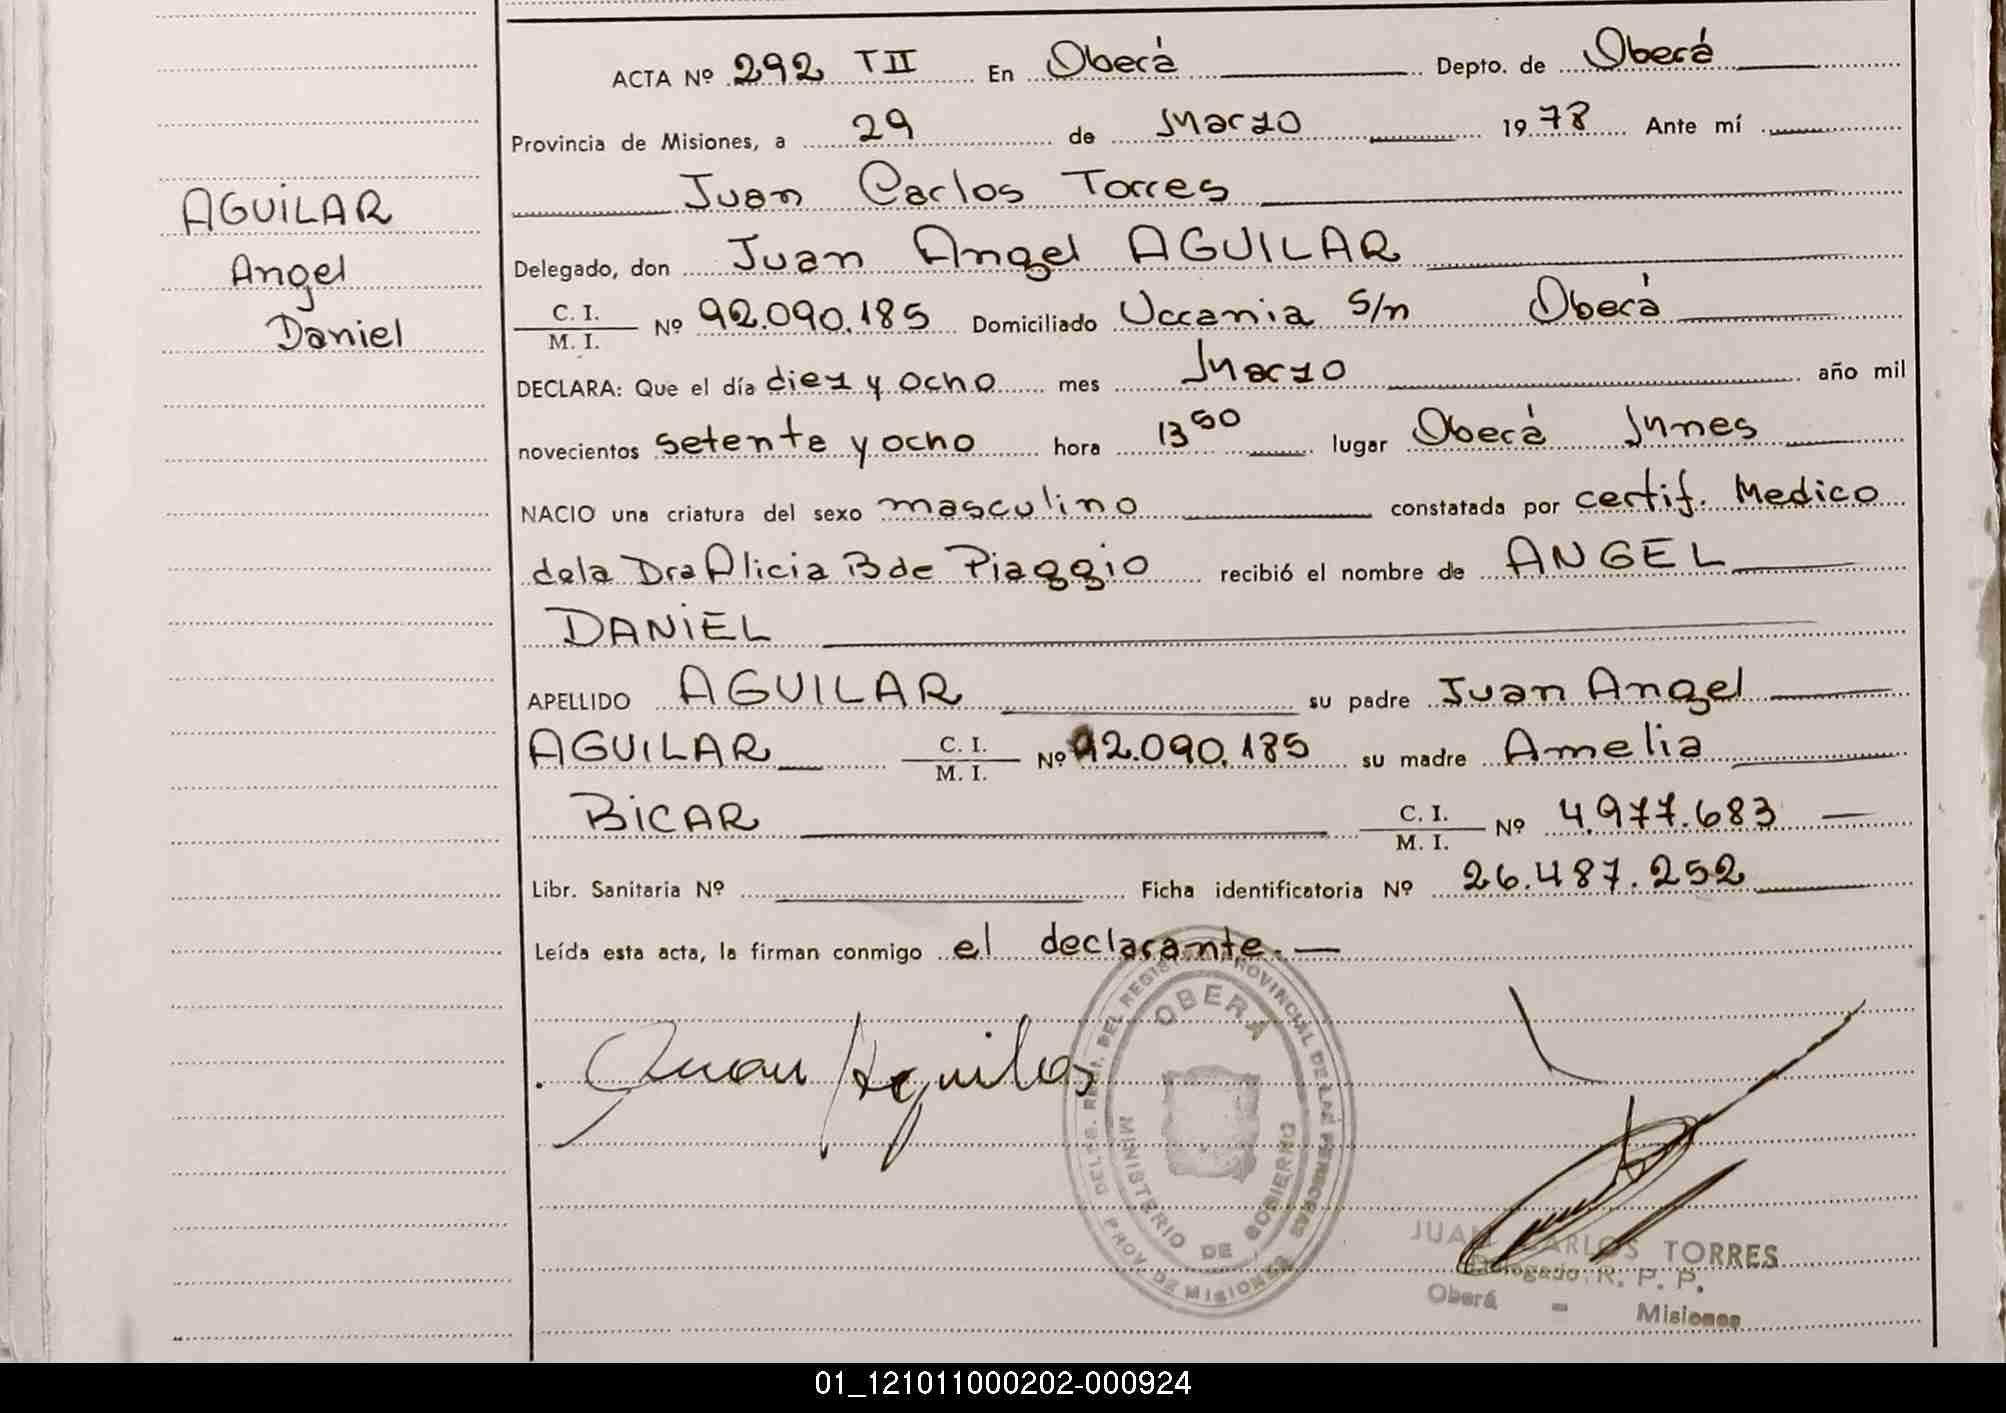 ACTA Nº 292 TII En Oberá Depto. de Oberá
Provincia de Misiones, a 29 de Marzo 1978 Ante mí
Juan Carlos Torres
AGUILAR
Angel
Daniel
Delegado, don Juan Angel AGUILAR
C. I.
M. I.
Nº 92.090.185 Domiciliado Uccania S/n Oberá
DECLARA: Que el día diez y ocho mes Marzo año mil
novecientos setenta y ocho hora 13 50 lugar Oberá Mnes
NACIO una criatura del sexo masculino constatada por certif. Medico
dela Dra Alicia B de Piaggio recibió el nombre de ANGEL
DANIEL
APELLIDO AGUILAR su padre Juan Angel
AGUILAR C. I. M. I. Nº 92.090.185 su madre Amelia
BICAR C. I. M. I. Nº 4.977.683
Libr. Sanitaria Nº Ficha identificatoria Nº 26.487.252
Leída esta acta, la firman conmigo el declarante.
Juan Aguilar
OBERA
MINISTERIO DE GOBIERNO
PROV. DE MISIONES
JUAN CARLOS TORRES
Delegado R. P. P.
Oberá - Misiones
01_121011000202-000924